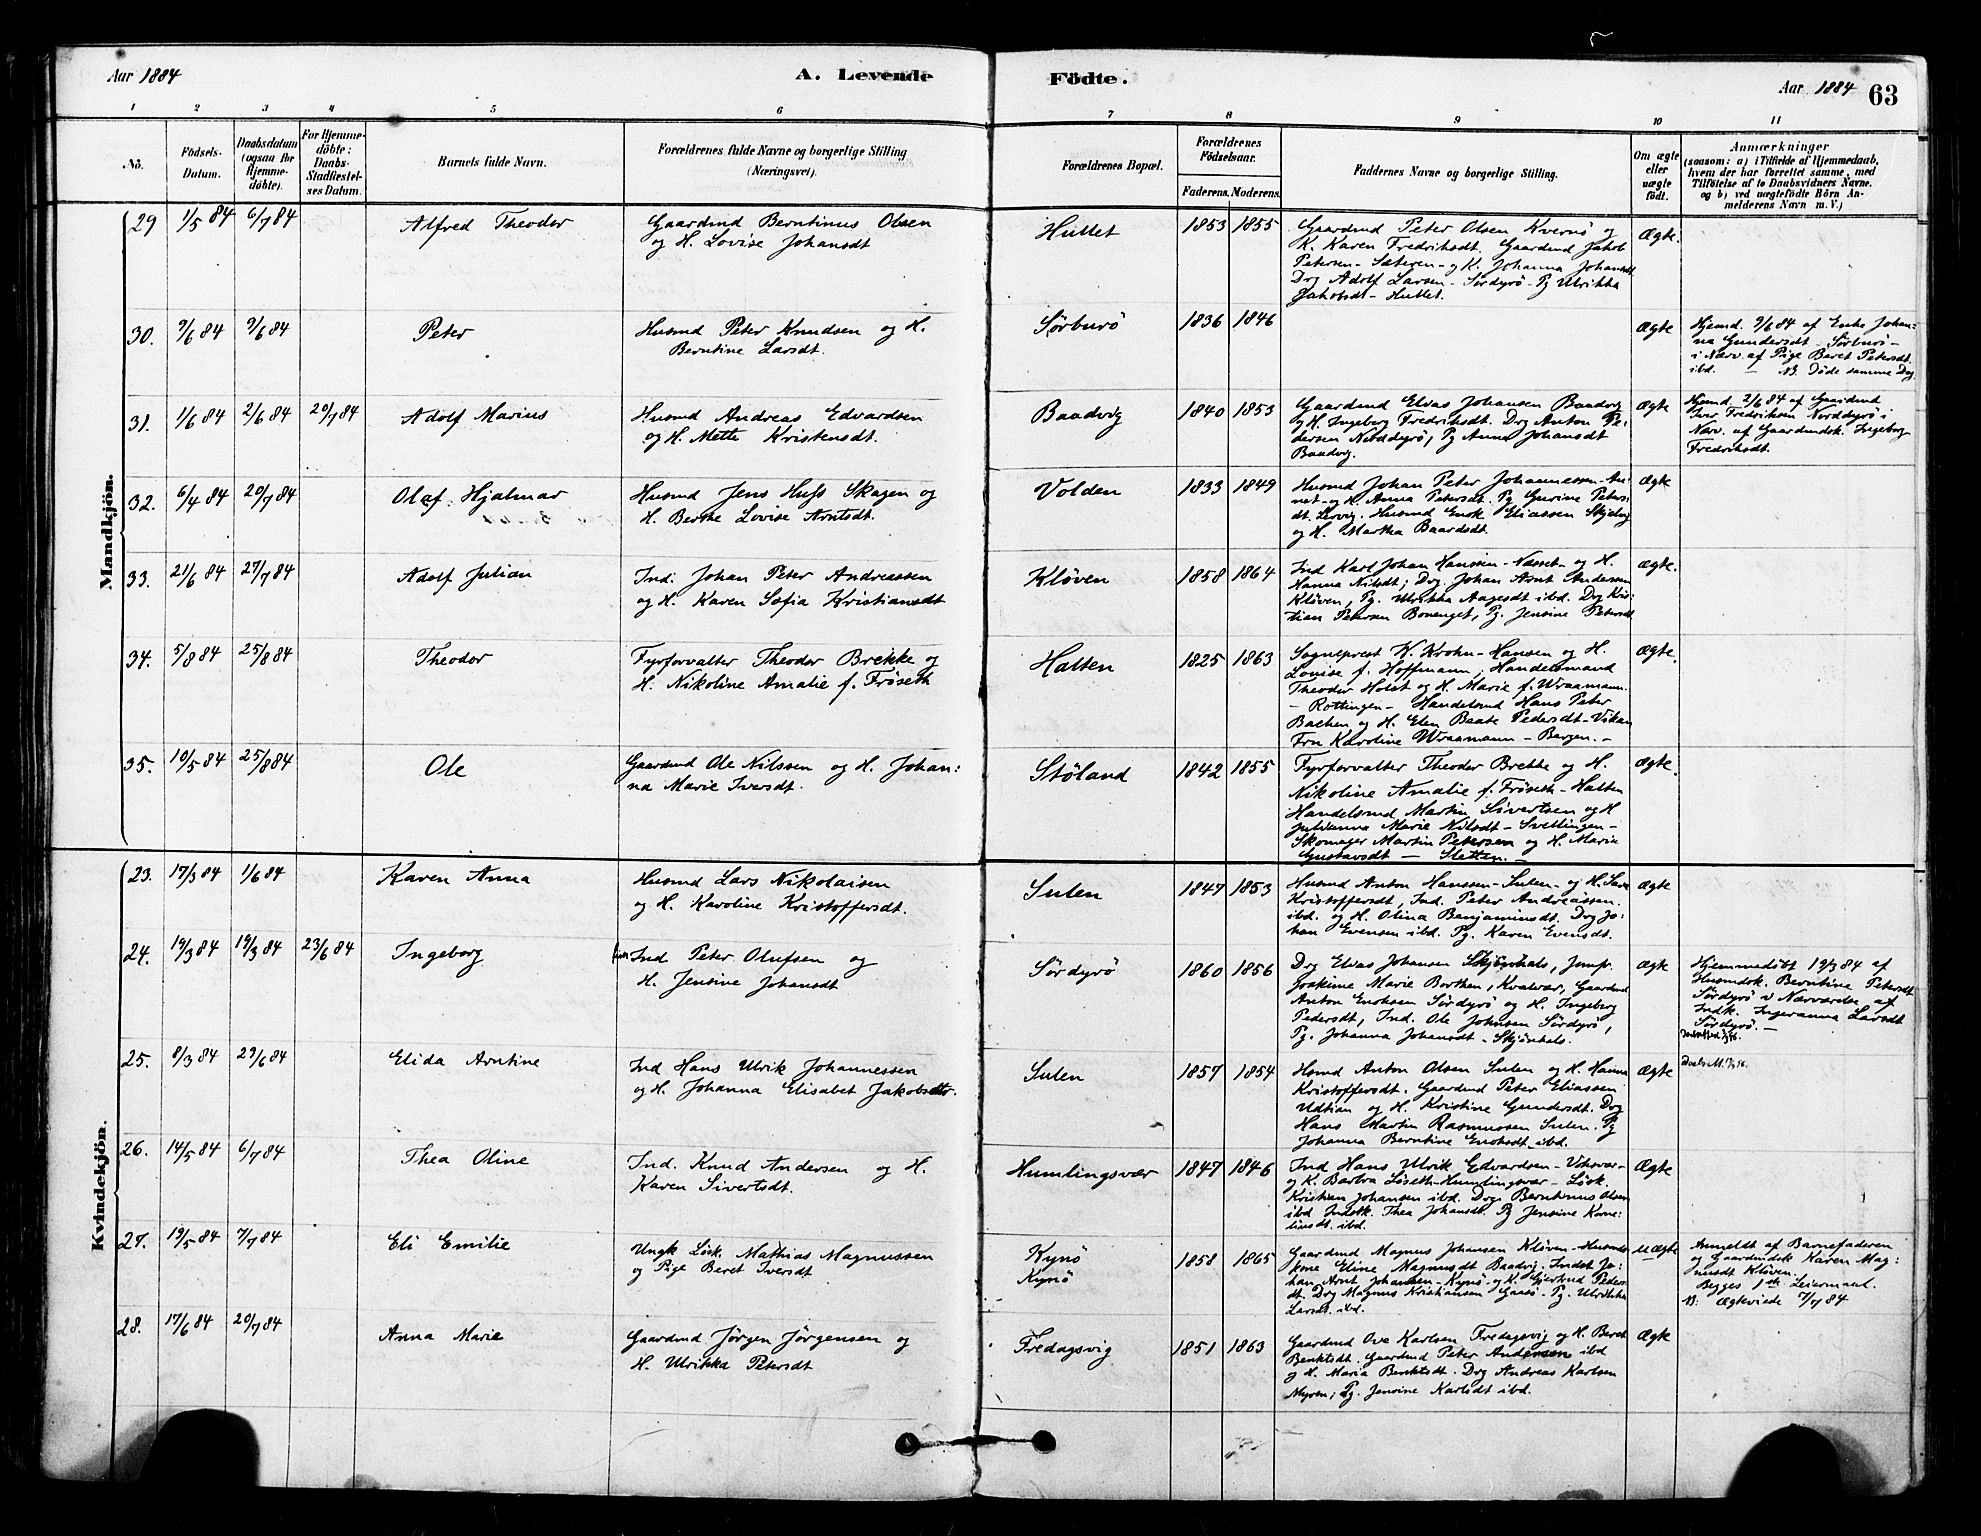 Aar 1884
A. Levende
Födte.
Aar 1884 63
1 2 3 4 5 6 7 8 9 10 11
No.
Födsels-
Datum.
Daabsdatum
(ogsaa for
Hjemme-
döbte).
For Hjemme-
döbte:
Daabs-
Stadfæstel-
ses Datum.
Barnets fulde Navn.
Forældrenes fulde Navne og borgerlige Stilling
(Næringsvei).
Forældrenes Bopæl.
Forældrenes
Födselsaar.
Faderens. Moderens.
Faddernes Navne og borgerlige Stilling.
Om ægte
eller
uægte
födt.
Anmærkninger
(saasom: a) i Tilfælde af Hjemmedaab,
hvem der har forrettet samme, med
Tilföielse af to Daabsvidners Navne.
og b) ved uægtefödte Börn An-
melderens Navn m. V.)
Mandkjön.
29 1/5 84 6/7 84 Alfred Theodor
Gaardmd Berntinus Olsen
og H. Lovise Johansdt
Hullet 1853 1855
Gaardmd Peter Olsen Kvernø og
K. Karen Fredriksdt. Gaardmd Jakob
Petersen - Sæteren - og K. Johanna Johansdt
Drg Adolf Larsen - Sørdyrø - Pg Ulrikka
Jakobsdt - Hullet.
Ægte.
30. 9/6 84 9/6 84 Peter
Husmd Peter Knudsen og H.
Berntine Larsdt.
Sørburø 1836 1846
Ægte
Hjemd. 9/6 84 af Enke Johan-
na Gundersdt - Sørburø -
i Nærv. af Pige Beret Petersdt
ibd. - NB. Døde samme Dag
31. 1/6 84 2/6 84 20/7 84 Adolf Marius
Husmd Andreas Edvardsen
og H. Mette Kristensdt.
Baadvig 1840 1853
Gaardmd Elias Johansen Baadvig
og H. Ingeborg Fredriksdt. Drg Anton Pe-
dersen Norddyrø, Pg Anna Johansdt
Baadvig.
Ægte
Hjemd. 2/6 84 af Gaardmd
Iver Fredriksen Norddyrø i
Nærv. af Gaardmdsk. Ingeborg
Fredriksdt.
32. 6/4 84 20/7 84 Olaf Hjalmar
Husmd Jens Huss Skagen og
H. Berthe Lovise Arntsdt.
Volden 1833 1849
Husmd Johan Peter Johannessen
og K. Anna Petersdt. Pg Gurine Peters-
dt. Husmd Enok Eliassen
og H. Martha Baardsdt.
Ægte
33. 21/6 84 27/7 84 Adolf Julian
Ind. Johan Peter Andreassen
og H. Karen Sofia Kristiansdt
Kløven 1858 1864
Ind Karl Johan Hanssen - Næsset - og H.
Hanna Nilsdt; Drg. Johan Arnt Andersen
Kløven, Pg. Ulrikka Aagesdt ibd. Drg Kris-
tian Petersen Bonenget, Pg. Jensine Petersdt
Ægte.
34. 5/8 84 25/8 84 Theodor
Fyrforvalter Theodor Brekke og
H. Nikoline Amalie f. Frøseth
Halten 1825 1863
Sogneprest K. Krohn-Hansen og H.
Louise f. Hoffmann, Handelsmand
Theodor Holst og H. Marie f. Wraamann.
- Rottingen - Handelsmd Hans Peter
Bachen og H. Elen Beate Pedersdt - Vikan
Fru Karoline Wraamann - Bergen. -
Ægte.
35. 10/5 84 25/8 84 Ole
Gaardmd Ole Nilssen og H. Johan-
na Marie Iversdt.
Støland 1842 1855
Fyrforvalter Theodor Brekke og H.
Nikoline Amalie f. Frøseth - Halten
Handelsmd Martin Sivertsen og H
Julianna Marie Nilsdt - Svellingen -
Skomager Martin Petersen og H. Marie
Gustavsdt - Sletten. -
Ægte.
Kvindekjön.
23. 17/3 84 1/6 84 Karen Anna
Husmd Lars Nikolaisen
og H. Karoline Kristoffersdt.
Sulen 1847 1853
Husmd Anton Hanssen - Sulen - og H. Sara
Kristoffersdt, Ind. Peter Andreassen
ibd. og H. Olina Benjaminsdt. Drg Jo-
han Evensen ibd. Pg. Karen Evensdt.
Ægte
24. 19/3 84 19/3 84 23/6 84 Ingeborg
Ind Peter Olufsen og
H. Jensine Johansdt
Sørdyrø 1860 1856
Drg Elias Johansen Skjønhals, Jomfr.
Joakime Marie Borthen, Kvalvær, Gaardmd
Anton Enoksen Sørdyrø og H. Ingeborg
Pedersdt, Ind. Ole Johnsen Sørdyrø,
Pg. Johanna Johansdt - Skjønhals.
Ægte
Hjemmedøbt 19/3 84 af
Husmdsk. Berntine Petersdt
Sørdyrø i Nærværelse af
Indk. Ingeranna Larsdt
Sørdyrø. -
25. 8/3 84 29/6 84 Elida Arntine
Ind Hans Ulrik Johannessen
og H. Johanna Elisabet Jakobsdtr.
Sulen 1857 1854
Hsmd Anton Olsen Sulen og H. Hanna
Kristoffersdt. Gaardmd Peter Eliassen
Udtian og H. Kristine Gundersdt. Drg
Hans Martin Rasmussen Sulen. Pg
Johanna Berntine Enoksdt ibd.
Ægte
26. 14/5 84 6/7 84 Thea Oline
Ind. Knud Andersen og H.
Karen Sivertsdt.
Humlingsvær 1847 1846
Ind Hans Ulrik Edvardsen - Vohsvær -
og K. Barbra Løseth - Humlingsvær - Løsk.
Kristian Johansen ibd. Drg Berntinus Olsen
ibd Indstk. Thea Johansdt. Pg Jensine Korne-
liusdt. ibd.
Ægte
27. 19/5 84 7/7 84 Eli Emilie
Ungk Løsk. Mathias Magnussen
og Pige Beret Iversdt
Kynø
Kynø
1858 1865
Gaardmd Magnus Johansen Kløven - Husmds-
kone Eline Magnusdt Baadvig - Indst Jo-
han Arnt Johansen - Kynø - og K. Gjertrud Peders-
dt. Drg Magnus Kristiansen Gaasø - Pg. Ulrikka
Larsdt ibd.
uægte
Anmeldt af Barnefaderen
og Gaardmdsk Karen Mag-
nusdt Kløven.
Begges 1ste Leiermaal.
NB: Ægteviede 7/7 84
28. 17/6 84 20/7 84 Anna Marie
Gaardmd Jørgen Jørgensen og
H. Ulrikka Petersdt
Fredagsvig 1851 1863
Gaardmd Ove Karlsen Fredagsvig og H. Beret
Benktsdt. Gaardmd Peter Andersen ibd
og H. Maria Benktsdt. Drg Andreas Karlsen
Myren; Pg. Jensine Karlsdt ibd.
Ægte